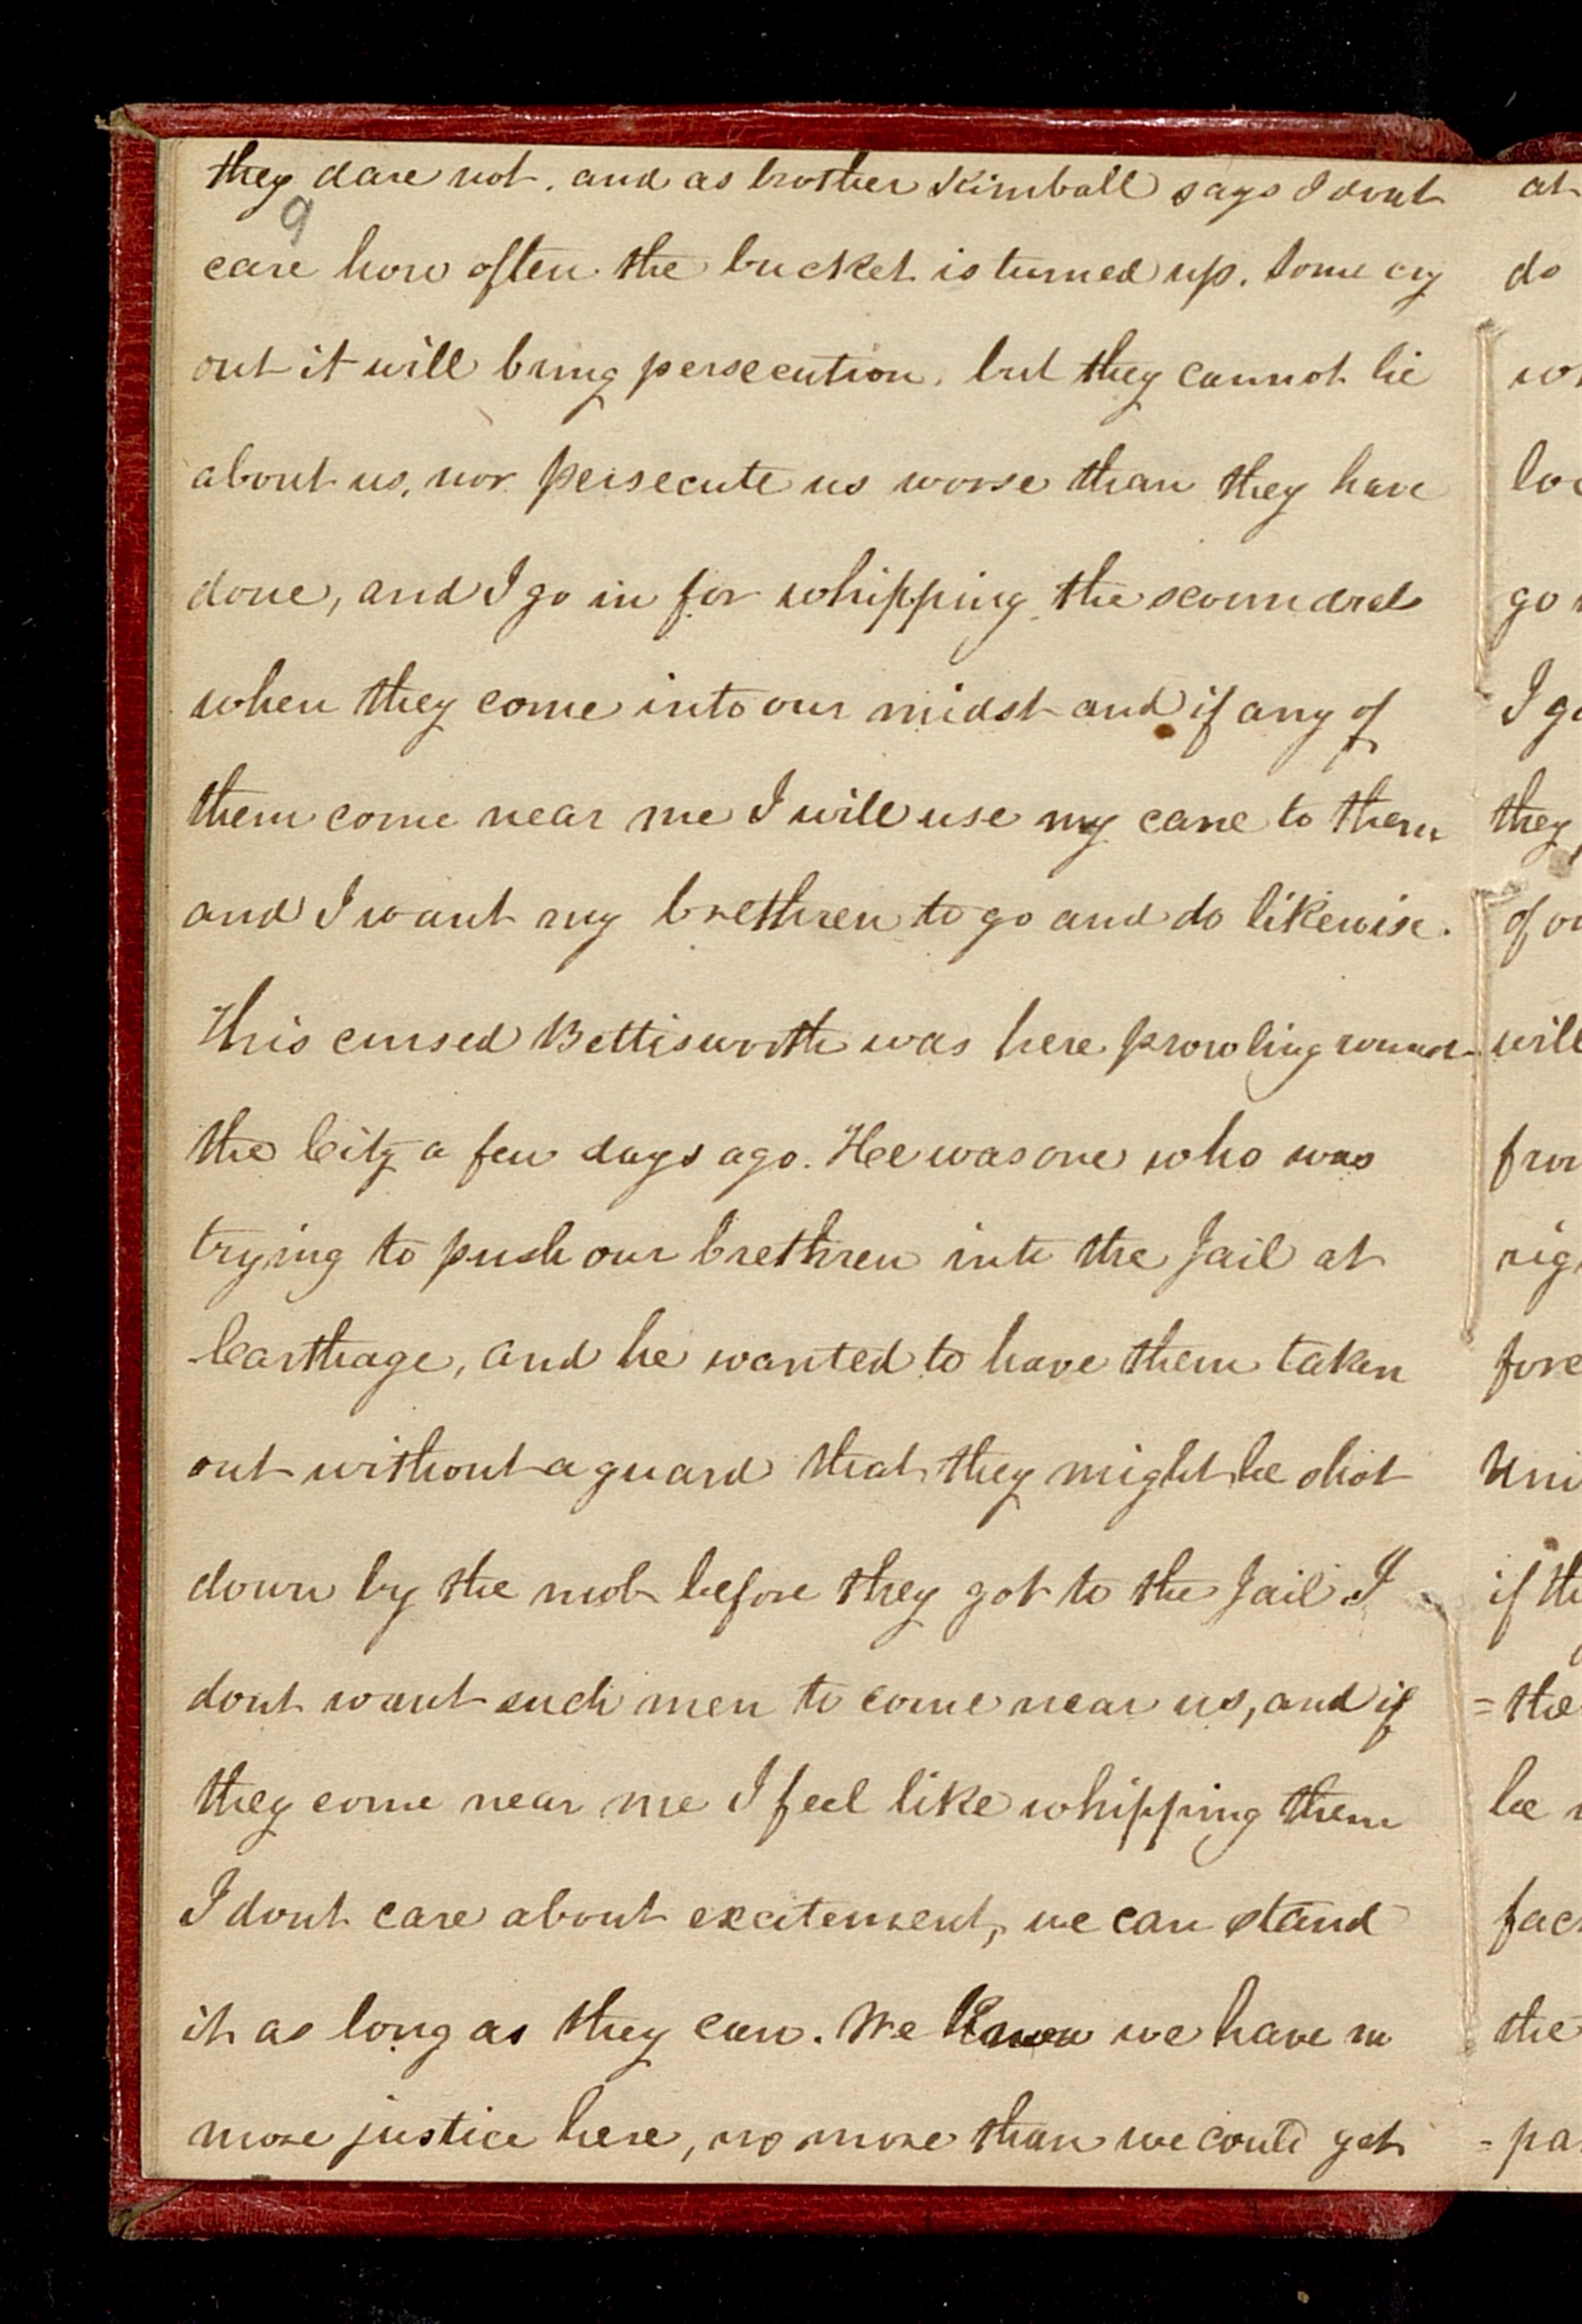 they dare not. and as brother Kimball says I dont
9
care how often the bucket is turned up. Some cry
out it will bring persecution, but they cannot lie
about us, nor persecute us worse than they have
done, and I go in for whipping the scoundrels
when they come into our midst and if any of
them come near me I will use my cane to them
and I want my brethren to go and do likewise.
This cursed Bettisworth was here prowling round
the City a few days ago. Hee was one who was
trying to push our brethren into the Jail at
Carthage, and he wanted to have them taken
out without a guard that they might be shot
down by the mob before they got to the Jail I
dont want such men to come near us, and if
they come near me I feel like whipping them
I dont care about excitement, we can stand
it as long as they can. We know we have no
more justice here, no more than we could get
at
do
go
I
they
of
will
the
be
the